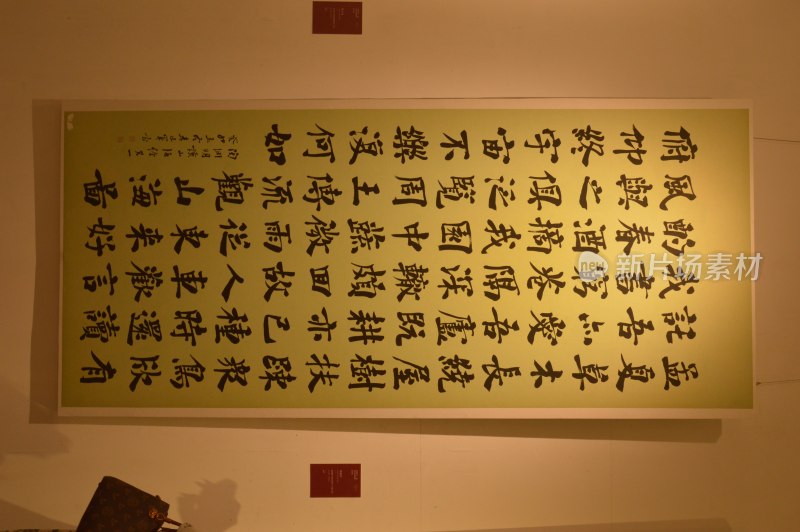 孟夏草木長繞屋樹扶踈眾鳥欣有
託吾亦愛吾廬既耕亦已種時還讀
我書窮巷隔深轍頗回故人車歡言
酌春酒摘我園中蔬微雨從東來好
風與之俱泛覽周王傳流觀山海圖
俯仰終宇宙不樂復何如
讀山海經其一
新片场素材